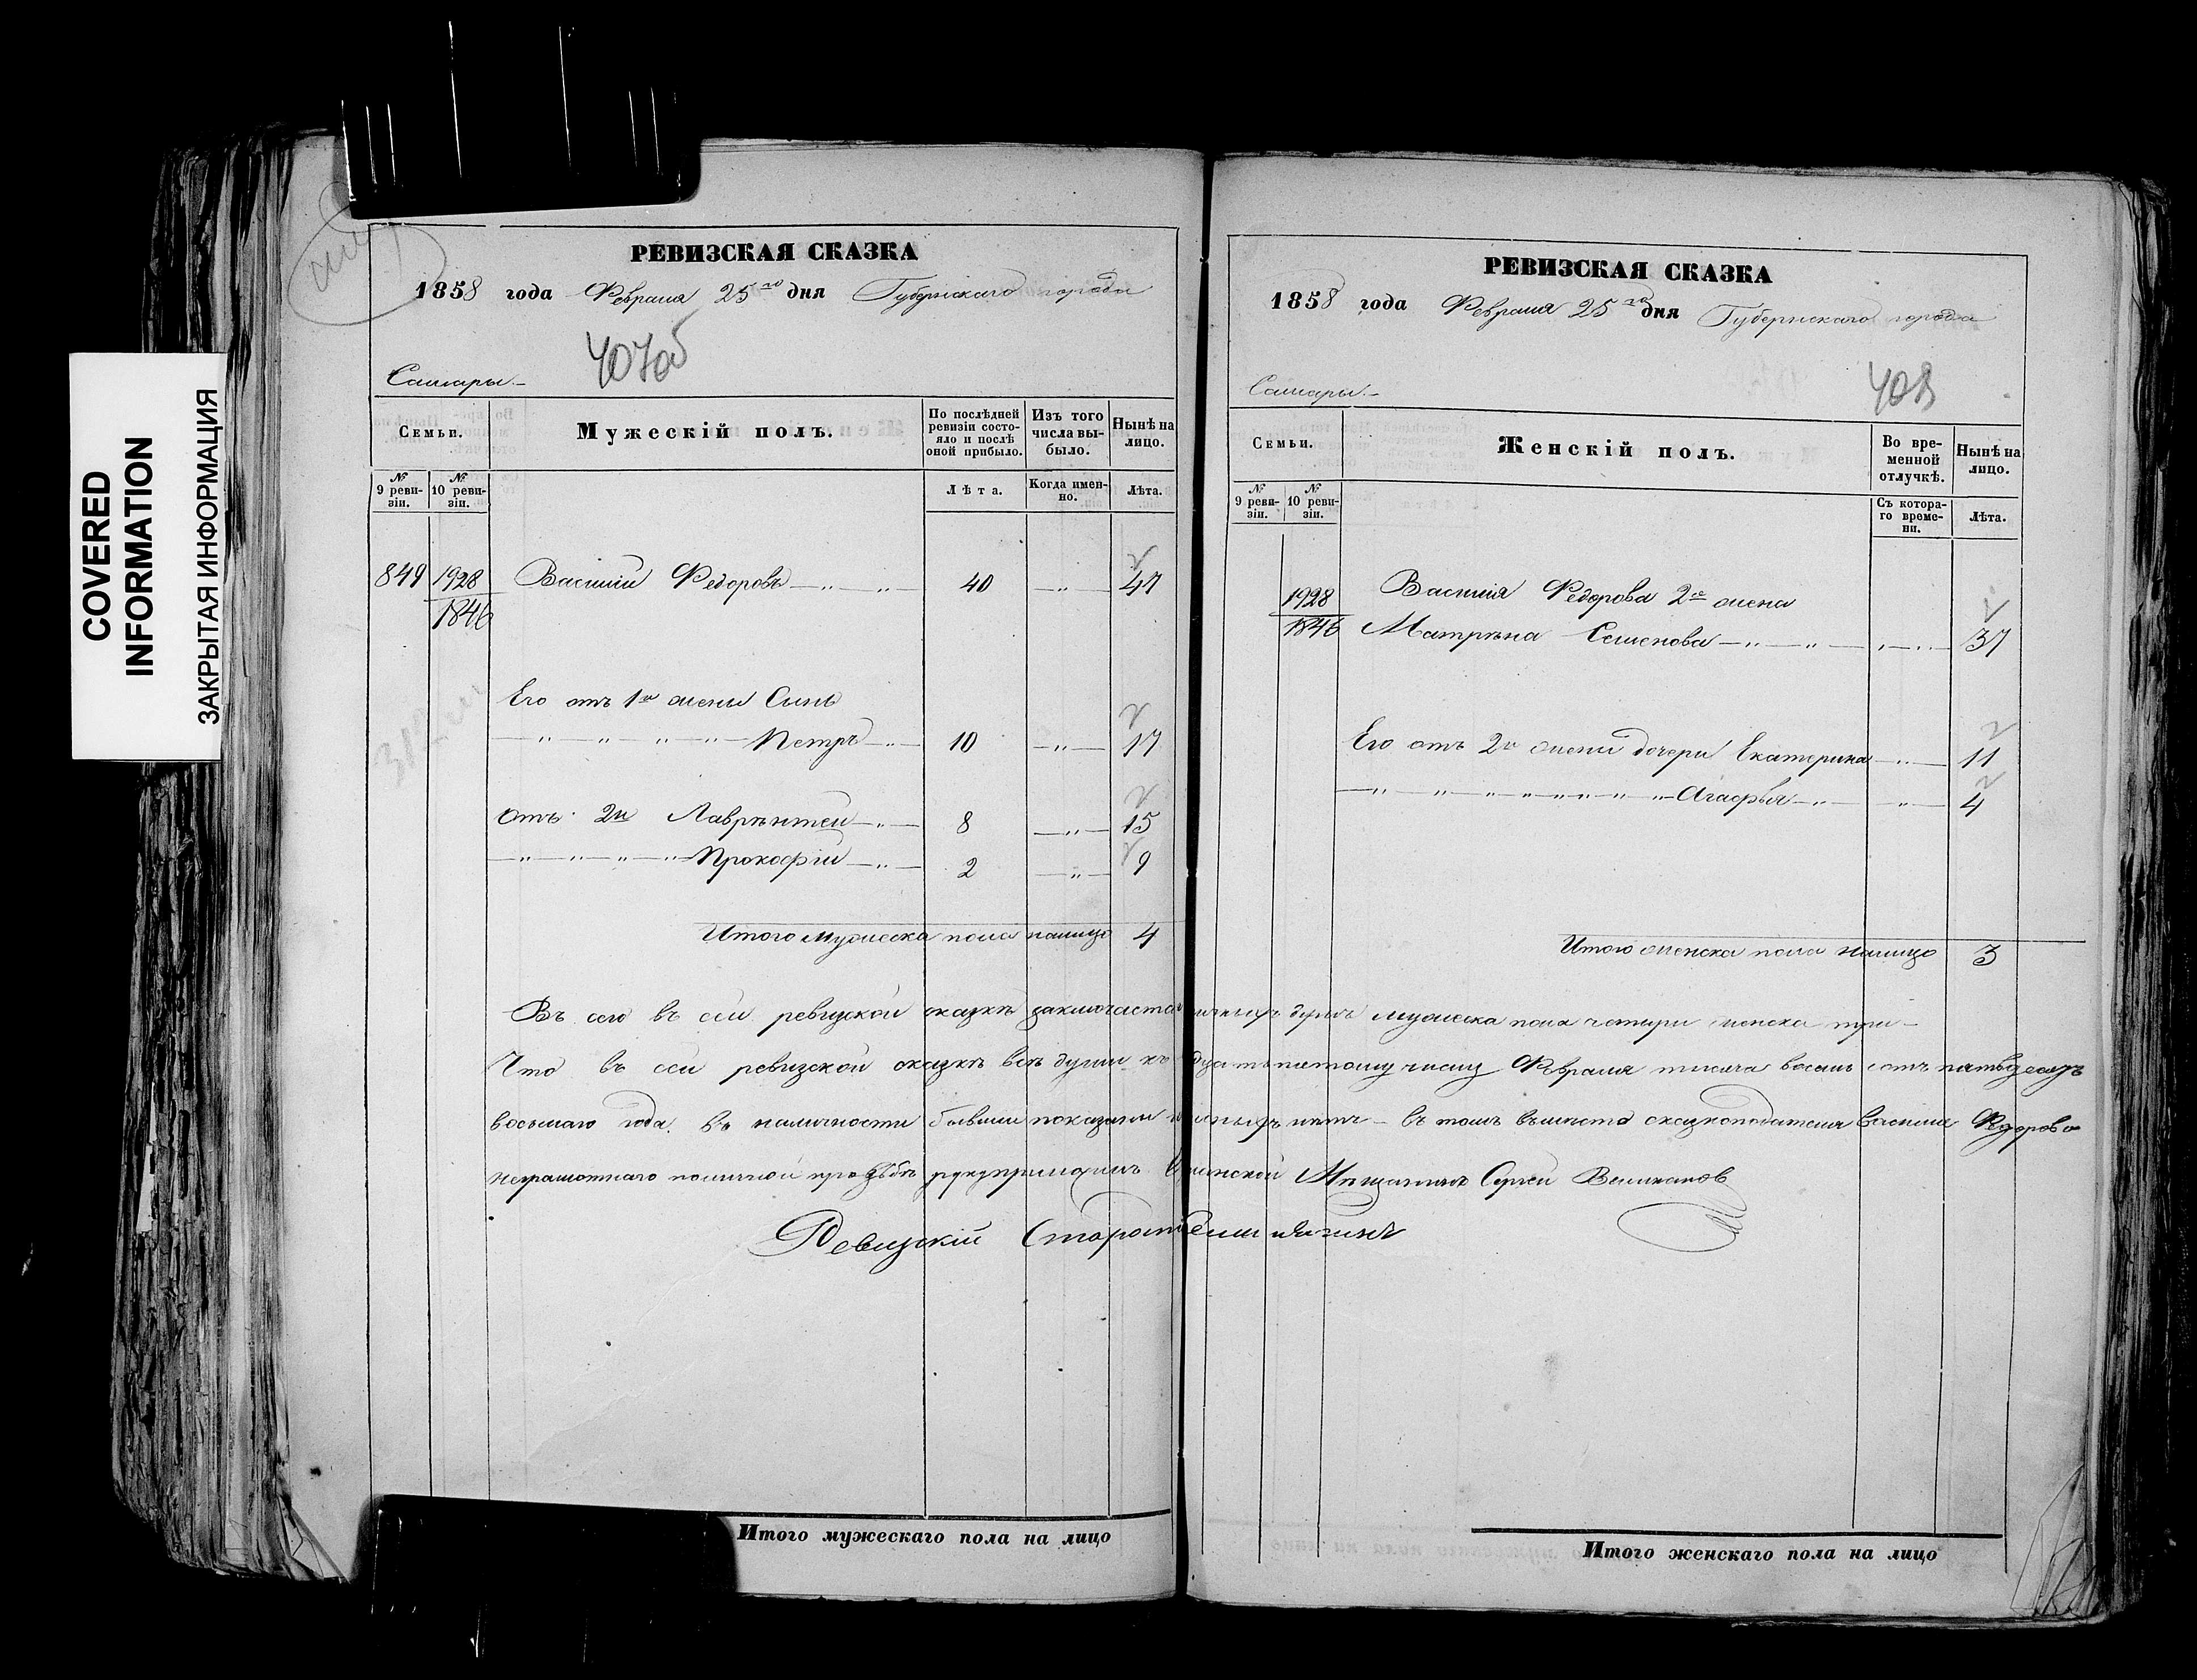 COVERED
INFORMATION
ЗАКРЫТАЯ ИНФОРМАЦИЯ
РЕВИЗСКАЯ СКАЗКА
1858 года Февраля 25го дня Губернскаго города
407об
Самары.
Семьи.
Мужескій полъ.
По послѣдней ревизіи состояло и послѣ оной прибыло.
Изъ того числа выбыло.
Нынѣ на лицо.
№ 9 ревизіи.
№ 10 ревизіи.
Лѣта.
Когда именно.
Лѣта.
849 1928 Василий Федоровъ 40 47
1846
Его отъ 1й жены Сынъ
Петръ 10 17
отъ 2й Лаврѣнтей 8 15
Прокофій 2 9
Итого мужеска пола налицо 4
РЕВИЗСКАЯ СКАЗКА
1858 года Февраля 25го дня Губернскаго города
408
Самары.
Семьи.
Женскій полъ.
Во временной отлучкѣ.
Нынѣ на лицо.
№ 9 ревизіи.
№ 10 ревизіи.
Съ котораго времени.
Лѣта.
1928 Василія Федорова 2я жена
1846 Матрѣна Семенова 37
Его отъ 2й жены дочери Екатерина 11
Агафья 4
Итого женска пола налицо 3
Въ сего въ сей ревизской сказкѣ заключается душъ мужеска пола четыри женска три
Что въ сей ревизской сказкѣ всѣ души къ двадцать пятому числу Февраля тысяча восемь сотъ пятьдесятъ
восьмаго года въ наличности бывши показаны нѣтъ въ томъ въмѣсто сказкоподателя Василия Федорова
неграмотнаго поличной прозьбѣ руку приложилъ Мѣщанинъ Сергей Великанов
Ревизскій Староста
Итого мужескаго пола на лицо
Итого женскаго пола на лицо